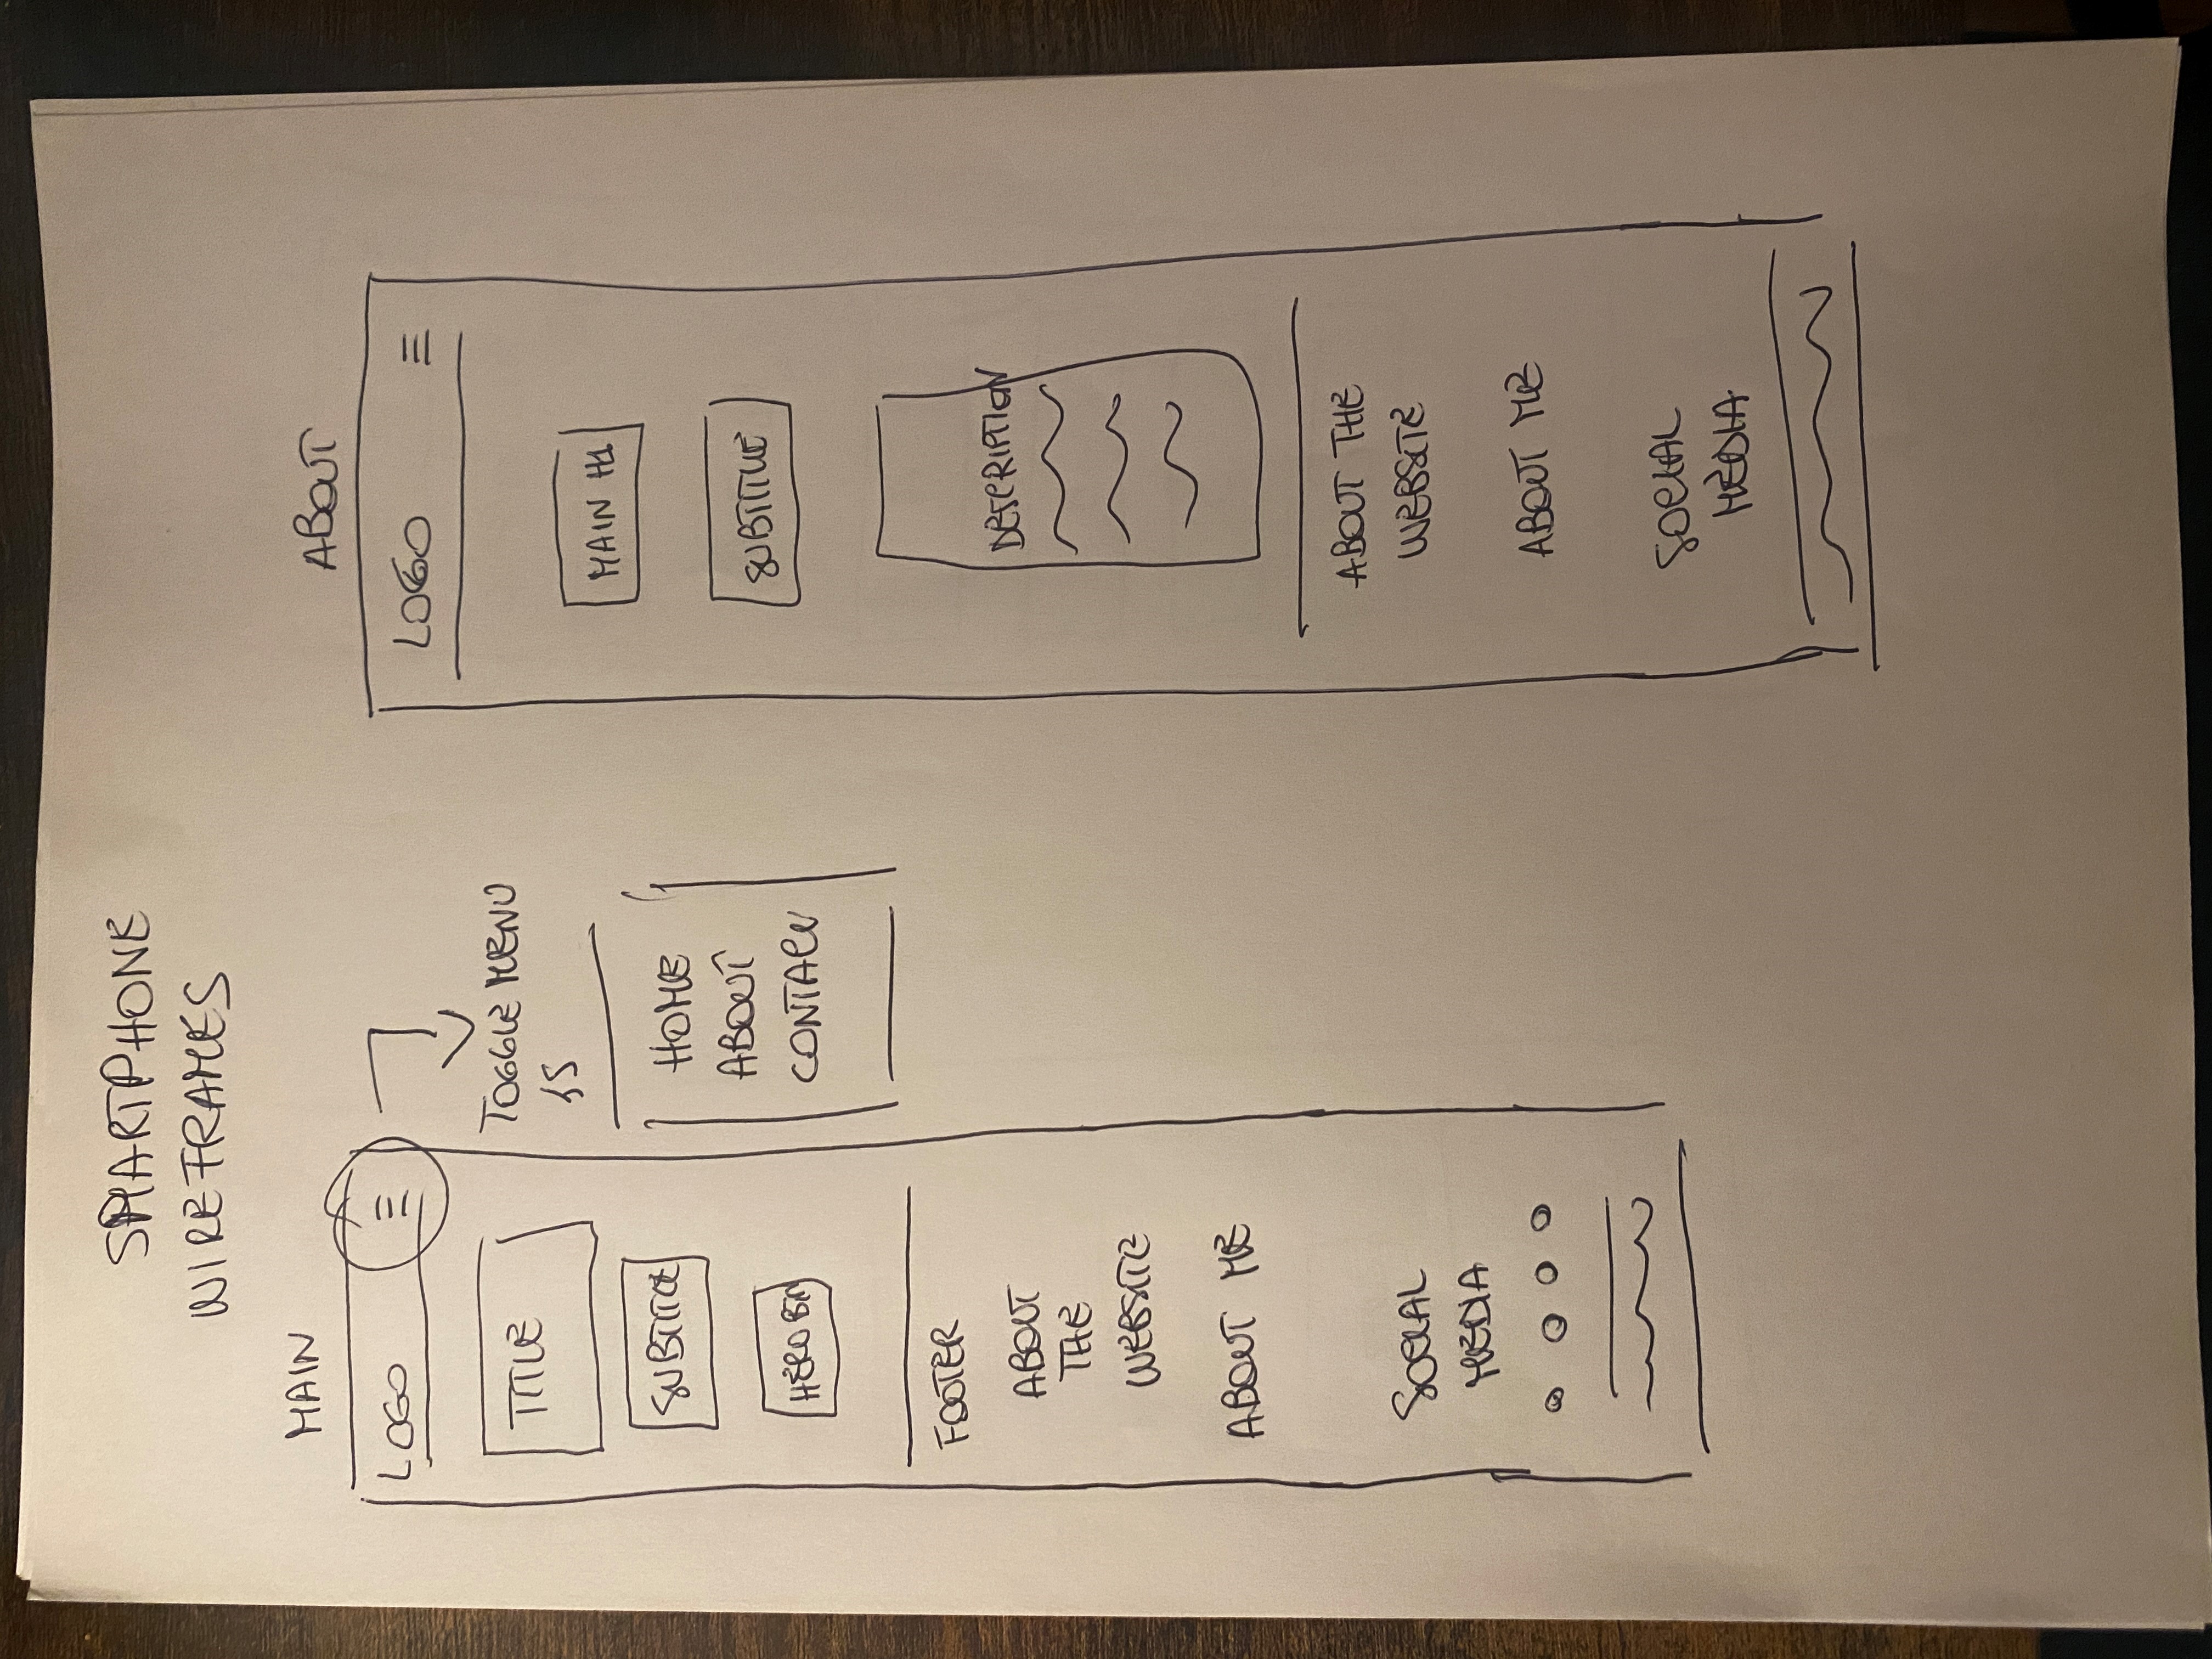 SMARTPHONE
WIREFRAMES
MAIN
LOGO
TITLE
SUBTITLE
HERO BTN
FOOTER
ABOUT
THE
WEBSITE
ABOUT ME
SOCIAL
MEDIA
TOGGLE MENU
JS
HOME
ABOUT
CONTACT
ABOUT
LOGO
MAIN H1
SUBTITLE
DESCRIPTION
ABOUT THE
WEBSITE
ABOUT ME
SOCIAL
MEDIA